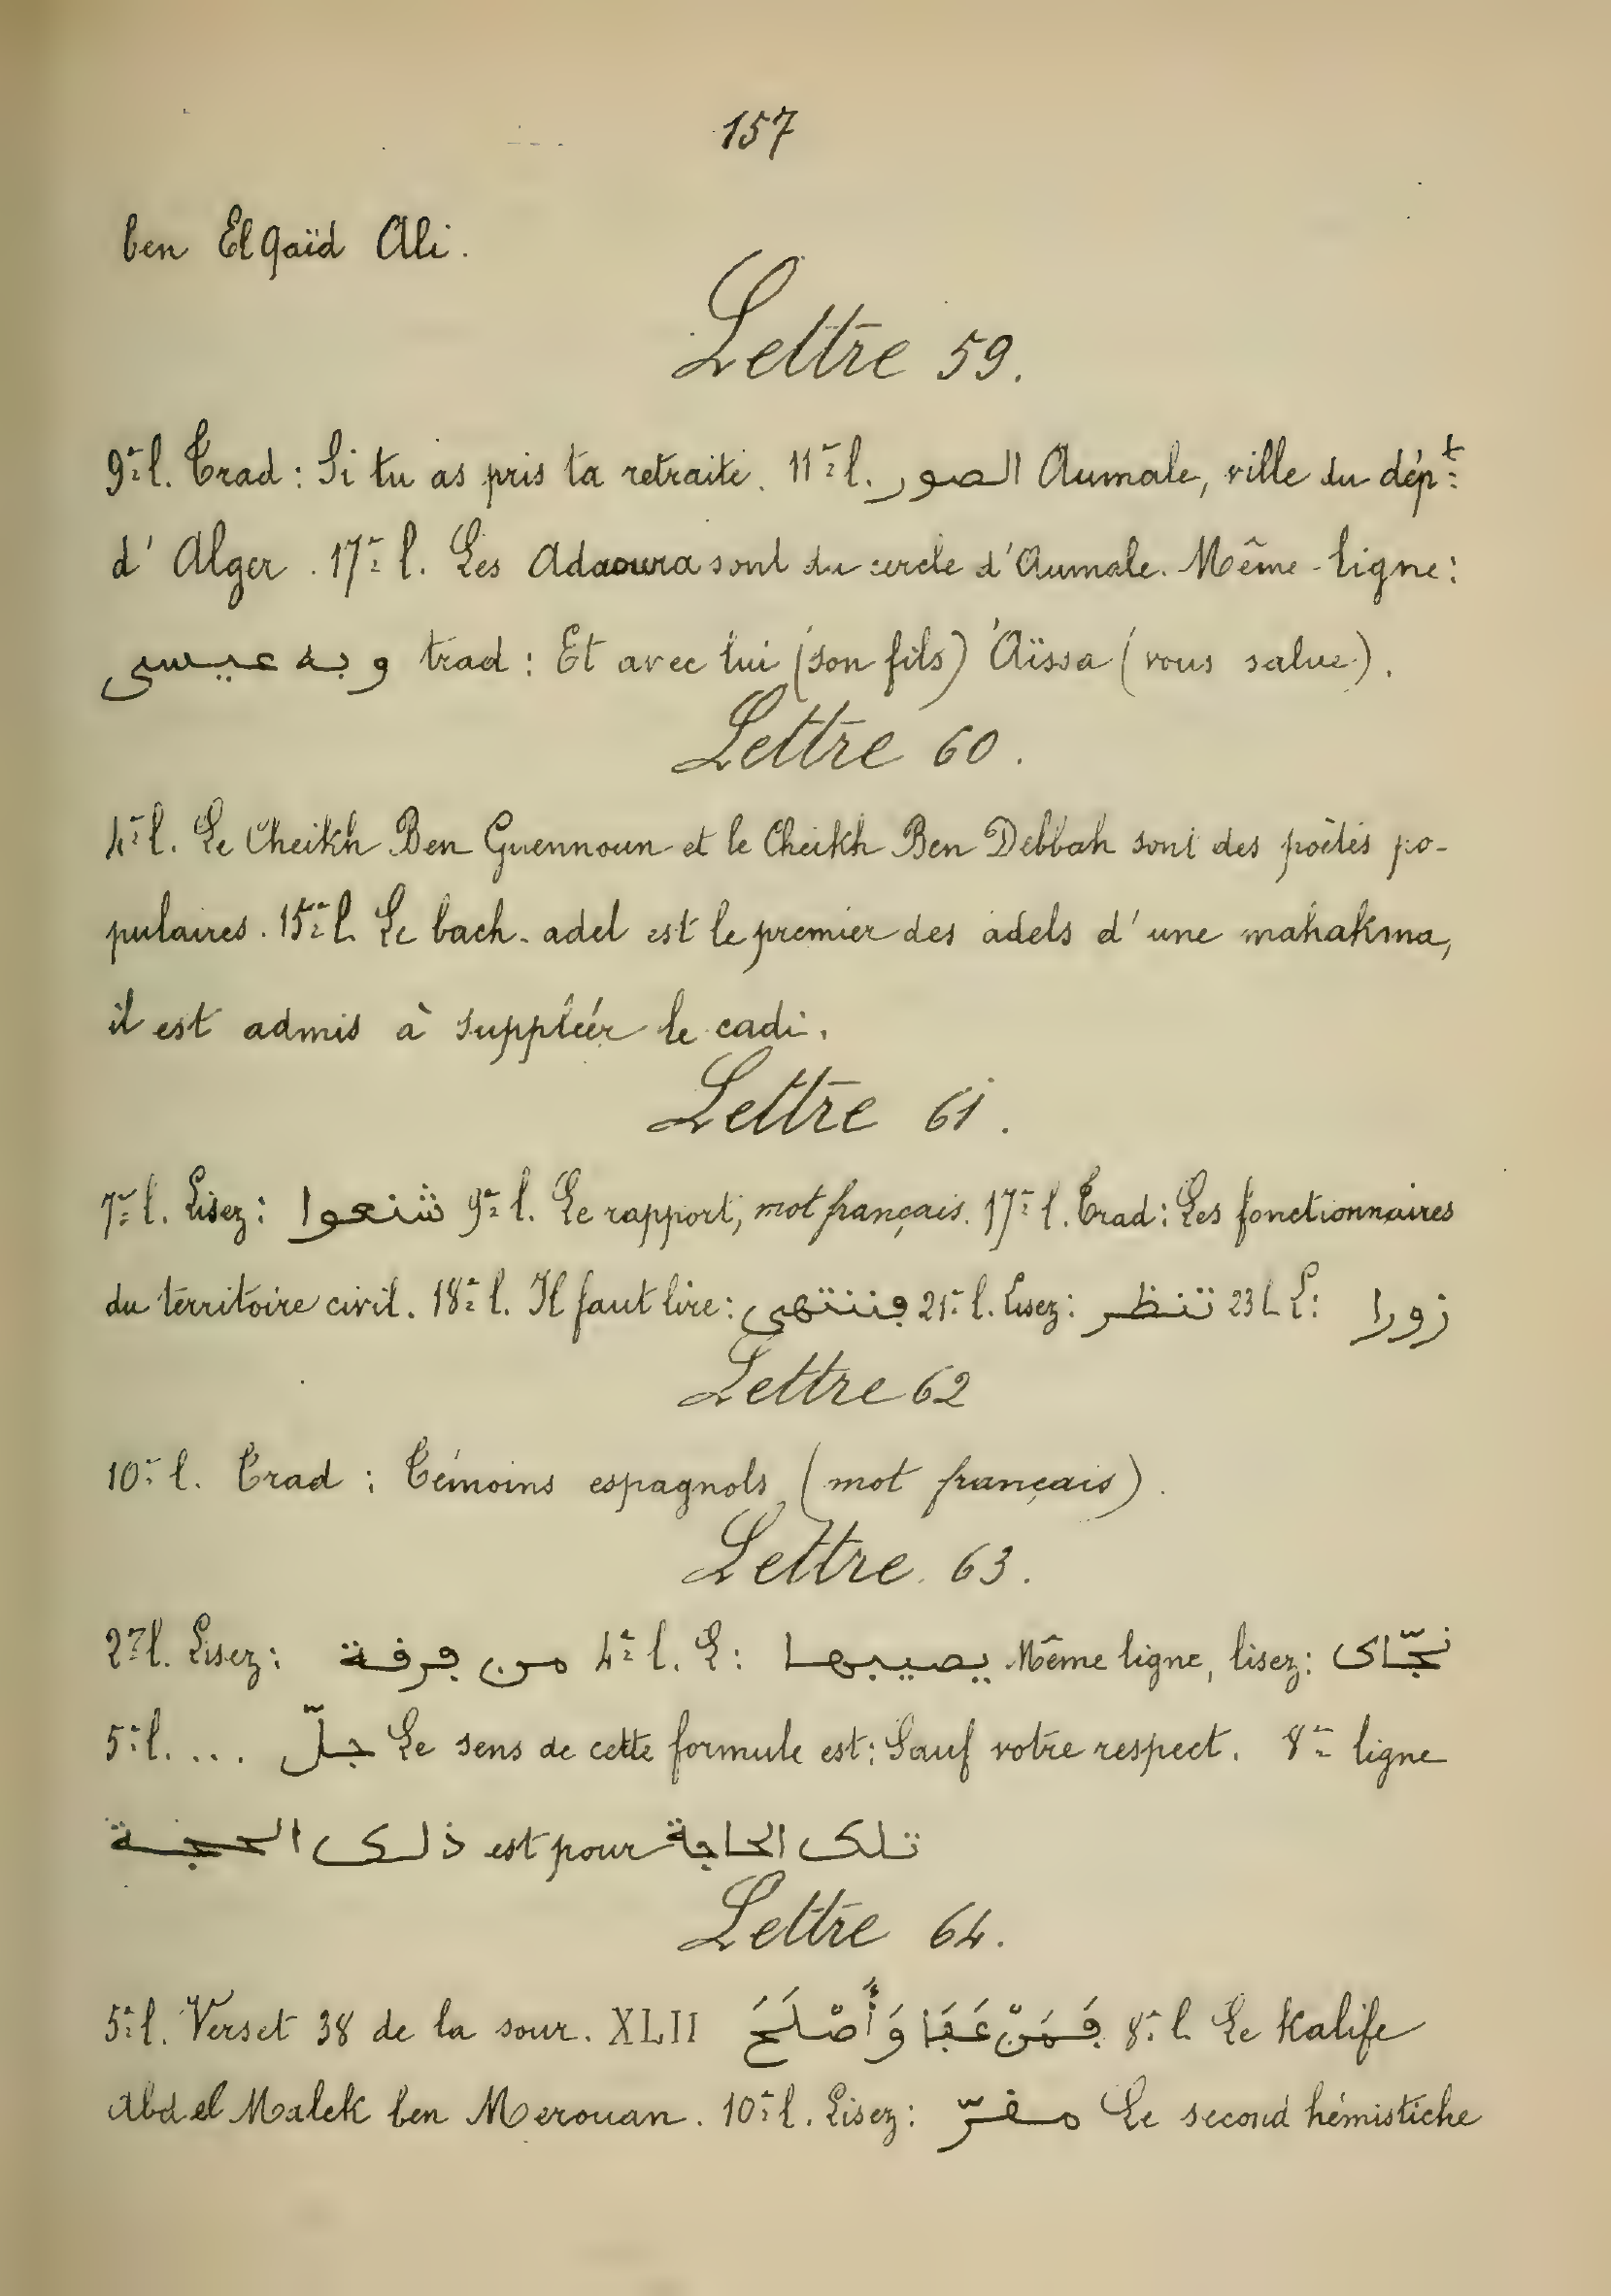 157
ben El Qaïd Ali.
Lettre 59.
9e l. Trad : Si tu as pris ta retraite. 11e l. الصور Aumale, ville du dépt
d'Alger. 17e l. Les Adaoura sont du cercle d'Aumale. Même ligne :
وبه عيسى trad : Et avec lui (son fils) 'Aïssa (vous salue).
Lettre 60.
4e l. Le Cheikh Ben Guennoun et le Cheikh Ben Debbah sont des poètes po-
pulaires. 15e l. Le bach-adel est le premier des adels d'une mahakma,
il est admis à suppléér le cadi.
Lettre 61.
7e l. Lisez : شنعوا 9e l. Le rapport, mot français. 17e l. Trad : Les fonctionnaires
du territoire civil. 18e l. Il faut lire : ڢننتهى 21e l. Lisez : تنظر 23 l. L : زورا
Lettre 62
10e l. Trad : Témoins espagnols (mot français).
Lettre 63.
2e l. Lisez : من ڢرفة 4e l. L : يصيبها Même ligne, lisez : نجّاى
5e l. ... جلّ Le sens de cette formule est : Sauf votre respect. 8e ligne
ذلك الحجة est pour تلك الحاجة
Lettre 64.
5e l. Verset 38 de la sour. XLII ڢَمَنْ عَڢَا وَأَصْلَحَ 8e l. Le Kalife
Abd el Malek ben Merouan. 10e l. Lisez : مفرّ Le second hémistiche